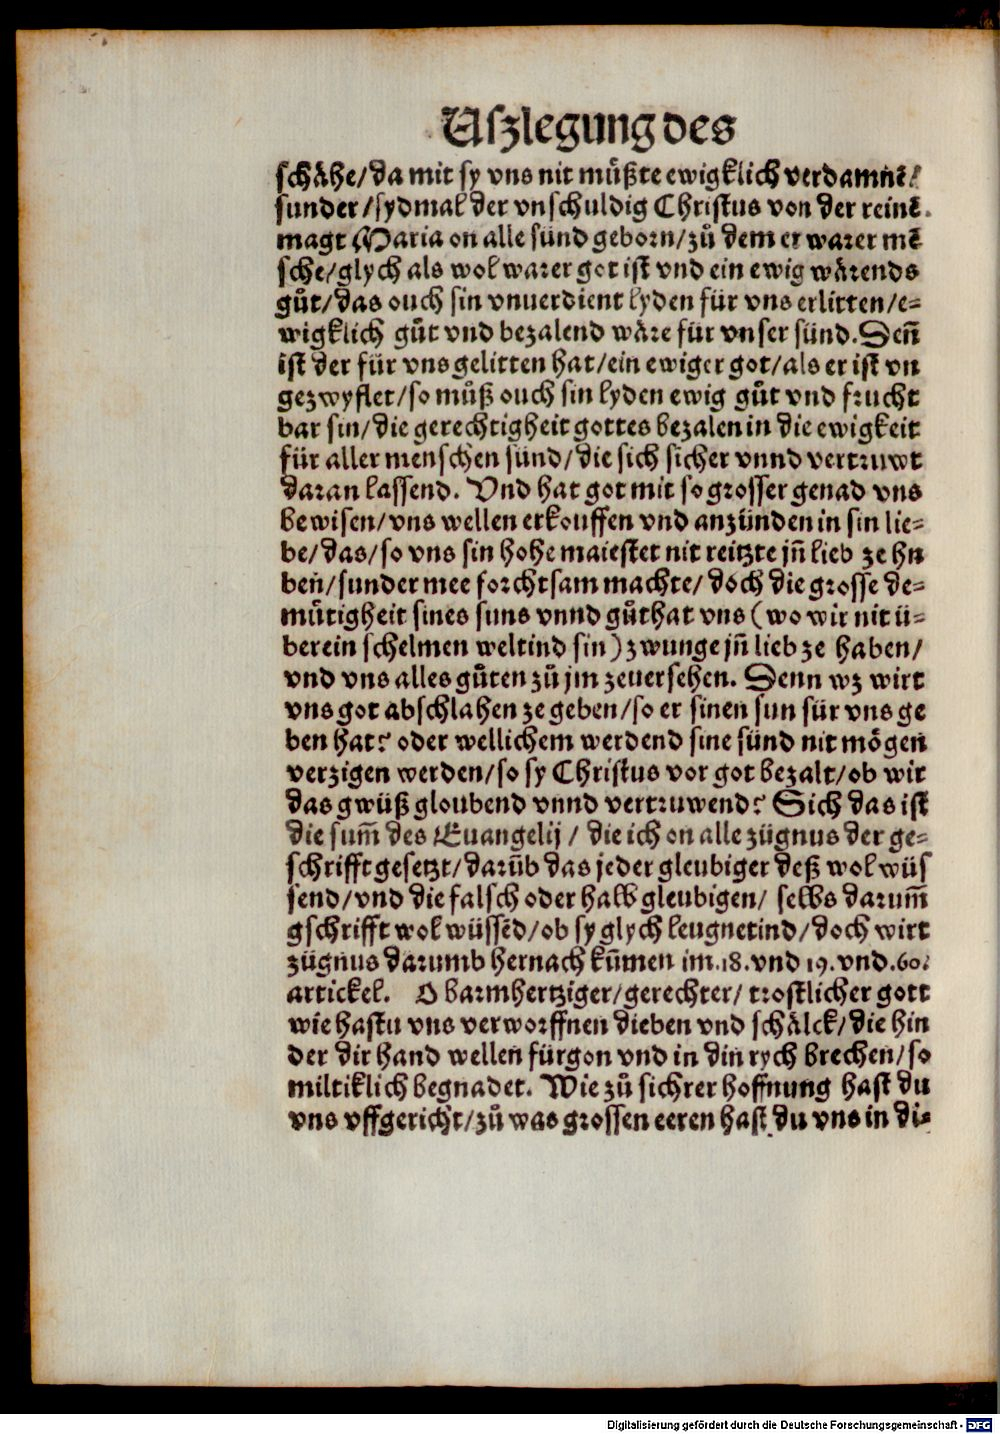 Uſzlegung des
schähe/da mit sy vns nit müßte ewigklich verdamnẽ/
sunder/sydmal der vnschuldig Christus von der reinẽ.
magt Maria on alle sünd geborn/zů dem er warer mẽ
sche/glych als wol warer got ist vnd ein ewig wärends
gůt/das ouch sin vnuerdient lyden für vns erlitten/e-
wigklich gůt vnd bezalend wäre für vnser sünd. Deñ
ist der für vns gelitten hat/ein ewiger got/als er ist vn
gezwyflet/so můß ouch sin lyden ewig gůt vnd frucht
bar sin/die gerechtigheit gottes bezalen in die ewigkeit
für aller menschen sünd/die sich sicher vnnd vertruwt
daran lassend. Vnd hat got mit so grosser genad vns
bewisen/vns wellen erkouffen vnd anzünden in sin lie-
be/das/so vns sin hohe maiestet nit reitzte jñ lieb ze hn
ben/sunder mee forchtsam machte/doch die grosse de-
můtigheit sines suns vnnd gůthat vns (wo wir nit ü-
berein schelmen weltind sin) zwunge jñ lieb ze haben/
vnd vns alles gůten zů jm zeuersehen. Denn wz wirt
vns got abschlahen ze geben/so er sinen sun für vns ge
ben hat? oder wellichem werdend sine sünd nit mögen
verzigen werden/so sy Christus vor got bezalt/ob wir
das gwüß gloubend vnnd vertruwend? Sich das ist
die sum̃ des Euangelij / die ich on alle zügnus der ge-
schrifft gesetzt/darũb das jeder gleubiger deß wol wüs
send/vnd die falsch oder halb gleubigen/ selbs darum̃
gschrifft wol wüssẽd/ob sy glych leugnetind/doch wirt
zügnus darumb hernach kũmen im .18. vnd 19. vnd .60.
artickel. O barmhertziger/gerechter/ trostlicher gott
wie hastu vns verworffnen dieben vnd schälck/die hin
der dir hand wellen fürgon vnd in din rych brechen/so
miltiklich begnadet. Wie zů sichrer hoffnung hast du
vns vffgericht/zů was grossen eeren hast du vns in di-
Digitalisierung gefördert durch die Deutsche Forschungsgemeinschaft - DFG